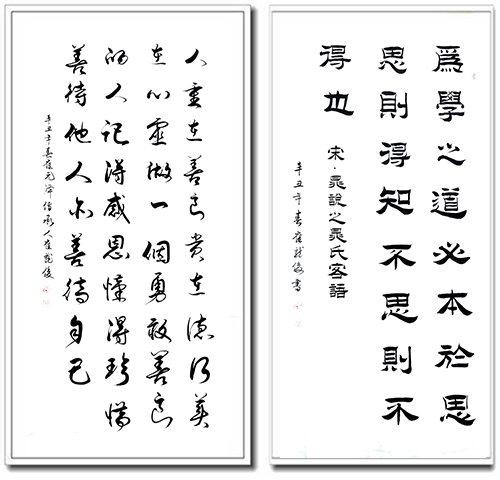 爲學之道必本於思
思則得知不思則不
得也
宋·晁說之晁氏客語
辛丑年春崔龍俊書
人重在善良贵在德行美
在心靈做一個勇敢善良
的人記得感恩懂得珍惜
善待他人亦善待自己
辛丑年春崔元 承人崔龍俊